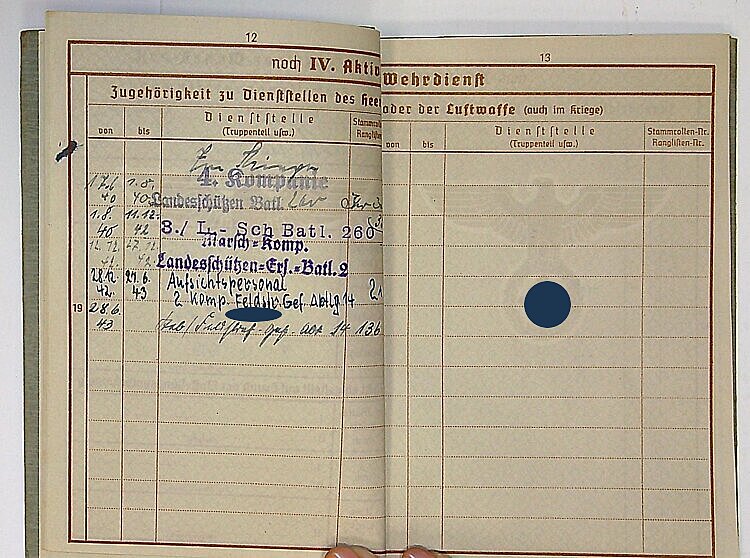 12
noch IV. Aktiv
Zugehörigkeit zu Dienststellen des Hee
von
bis
Dienststelle
(Truppenteil usw.)
Stammroll
Ranglisten
4. Kompanie
17.6. 1.8.
40 40
Landesschützen Batl.
1.8. 11.12.
40 42
3./ L.- Sch Batl. 260
12.12. 27.12.
42 42
Marsch-Komp.
Landesschützen-Ers.-Batl. 2
28.12. 27.6.
42. 43
Aufsichtspersonal
2. Komp. Feldstr. Gef. Abtlg 14
19
28.6.
43
14 136
13
Wehrdienst
oder der Luftwaffe (auch im Kriege)
von
bis
Dienststelle
(Truppenteil usw.)
Stammrollen-Nr.
Ranglisten-Nr.